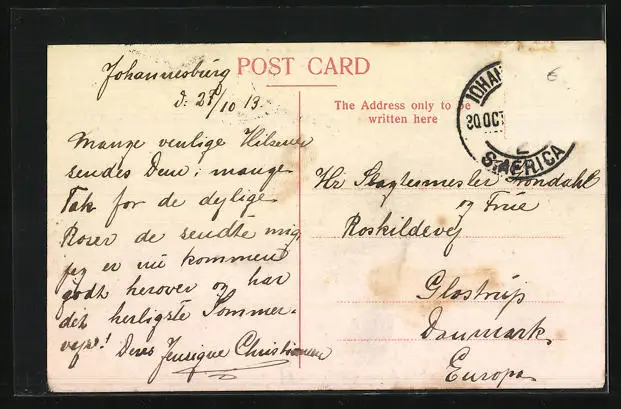 Johannesburg
POST CARD
d. 28/10 13.
The Address only to be
written here
JOHAN
30 OCT
S. AFRICA
6
Mange venlige Hilsener
sendes Dem; mange
Tak for de dejlige
Roser de sendte mig,
jeg er nu kommen
godt herover og har
det herligste Sommer-
vejr! Deres Christiansen
Hr Slagtermester Grøndahl
og Frue
Roskildevej
Glostrup
Danmark
Europa